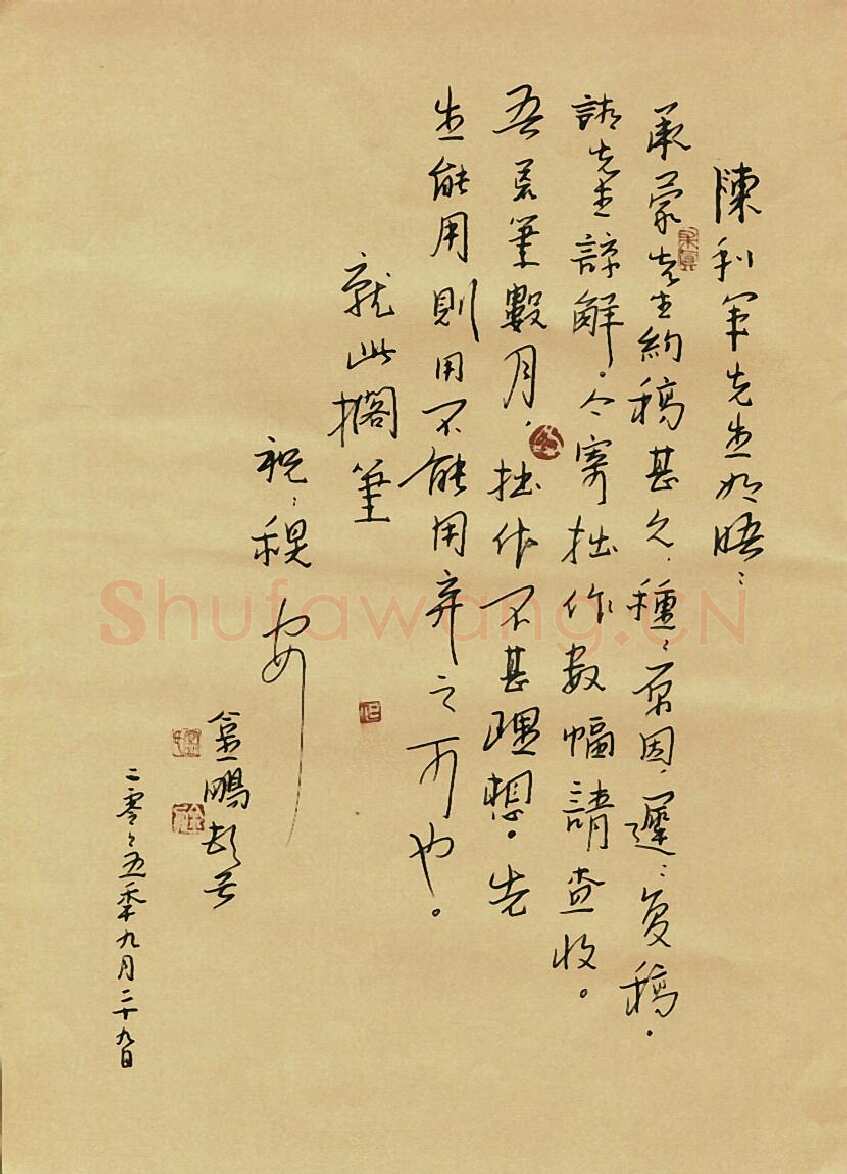 陳利軍先生如晤：
承蒙先生約稿甚久，種種原因，遲遲复稿。
請先生諒解。今寄拙作數幅請查收。
吾荒筆數月，拙作不甚理想。先
生能用則用不能用弃之可也。
就此擱筆
祝：穆安
金鵬頓首
二零零五季九月二十九日
Shufawang.CN